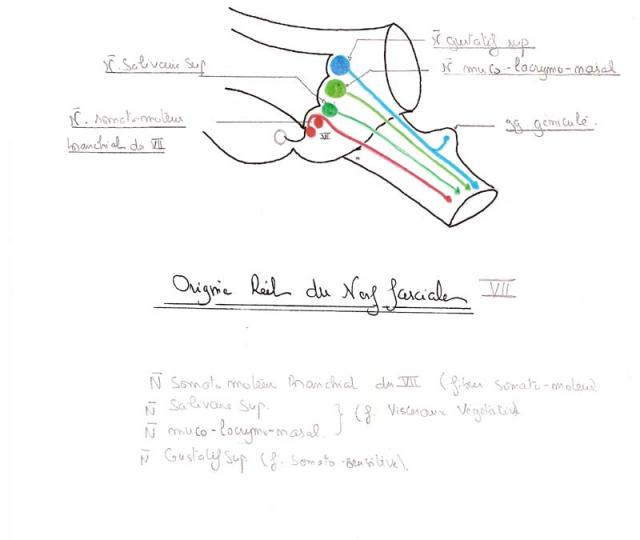 N̄ gustatif sup
N̄. Salivaire Sup
N̄ muco-lacrymo-nasal
N̄. somato-moteur
branchial du VII
gg geniculé.
VII
Origine Réel du Nerf fasciale VII
N̄ Somato moteur Branchial du VII (fibres Somato-moteur)
N̄ Salivaire Sup.
} (f. Viscéraux Végétatifs
N̄ muco-lacrymo-nasal.
N̄ Gustatif Sup (f. Somato-sensitive).